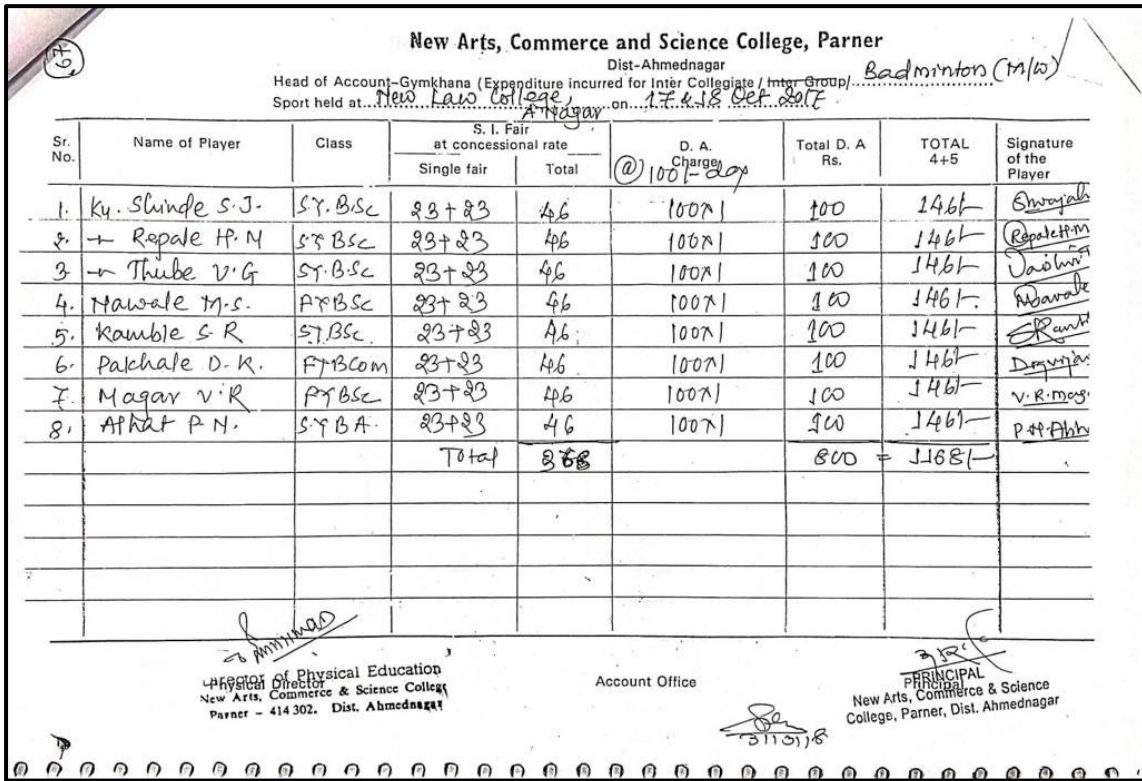 67
New Arts, Commerce and Science College, Parner
Dist-Ahmednagar
Head of Account-Gymkhana (Expenditure incurred for Inter Collegiate / Inter Group/. Badminton (M/W)
Sport held at New Law College, A'Nagar on 17 & 18 Oct 2017
Sr. No. Name of Player Class S. I. Fair at concessional rate Single fair Total D. A. Charge @ 100/- day Total D. A Rs. TOTAL 4+5 Signature of the Player
1. Ku. Shinde S.J. S.Y.B.Sc 23+23 46 100x1 100 146/-
2. Repale H.M S.Y BSc 23+23 46 100x1 100 146/- Repale H.M
3 Thube V.G S.Y.B.Sc 23+23 46 100x1 100 146/-
4. Nawale M.S. FYBSc 23+23 46 100x1 100 146/-
5. Kamble S.R S.Y.BSc 23+23 46 100x1 100 146/-
6. Pakhale D.K. FYBCom 23+23 46 100x1 100 146/-
7. Magar V.R FYBSc 23+23 46 100x1 100 146/- V.R.Mag.
8. P.N. S.Y BA. 23+23 46 100x1 100 146/-
Total 368 800 = 1168/-
Director of Physical Education
Physical Director
New Arts, Commerce & Science College
Parner - 414 302. Dist. Ahmednagar
Account Office
31/3/18
PRINCIPAL
Principal
New Arts, Commerce & Science
College, Parner, Dist. Ahmednagar